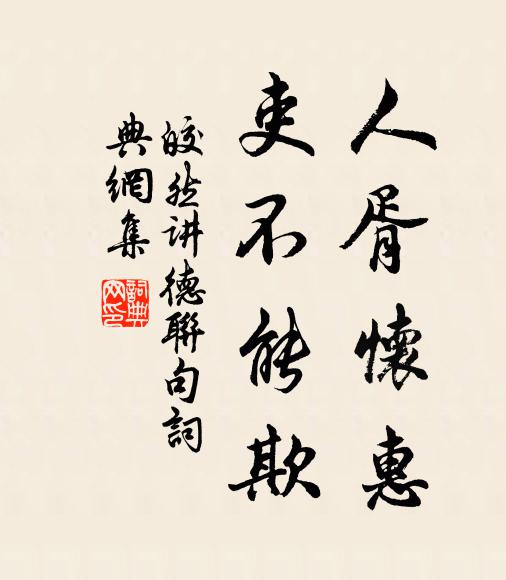 人胥懷惠
吏不能欺
皎然讲德聯句詞
典網集
詞典
网印